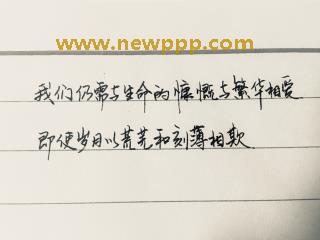 www.newppp.com
我们仍需与生命的慷慨与繁华相爱
即使岁月以荒芜和刻薄相欺